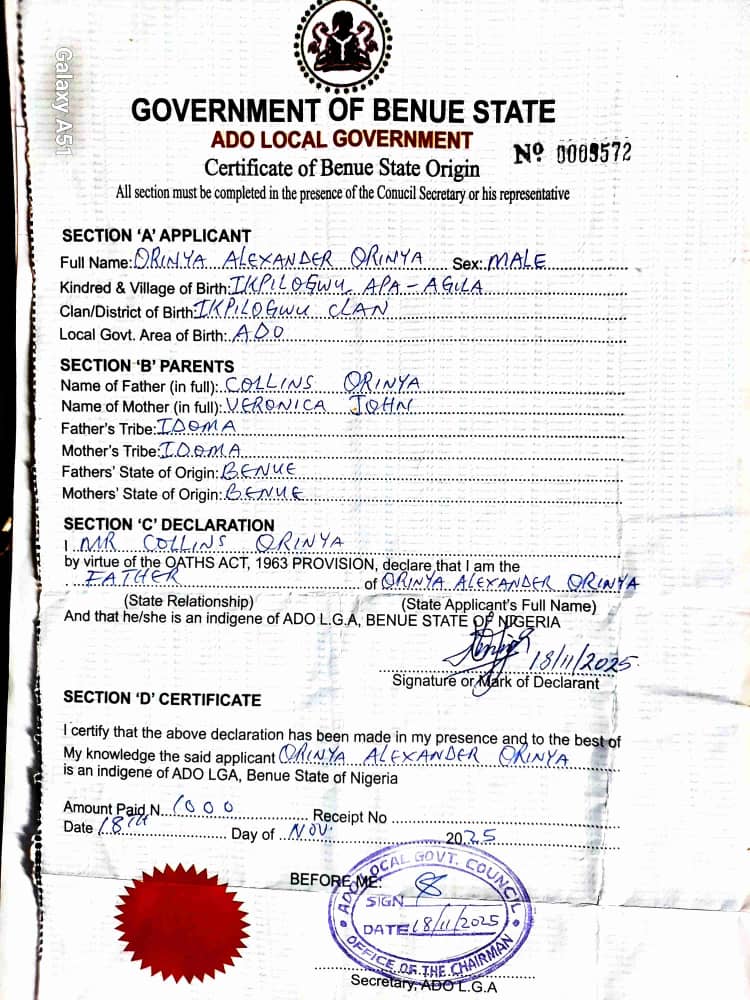 Galaxy A51
GOVERNMENT OF BENUE STATE
ADO LOCAL GOVERNMENT
Nº 0009572
Certificate of Benue State Origin
All section must be completed in the presence of the Conucil Secretary or his representative
SECTION 'A' APPLICANT
Full Name: ORINYA ALEXANDER ORINYA Sex: MALE
Kindred & Village of Birth: IKPILOGWU APA - AGILA
Clan/District of Birth: IKPILOGWU CLAN
Local Govt. Area of Birth: ADO
SECTION 'B' PARENTS
Name of Father (in full): COLLINS ORINYA
Name of Mother (in full): VERONICA JOHN
Father's Tribe: IDOMA
Mother's Tribe: IDOMA
Fathers' State of Origin: BENUE
Mothers' State of Origin: BENUE
SECTION 'C' DECLARATION
I MR COLLINS ORINYA
by virtue of the OATHS ACT, 1963 PROVISION, declare that I am the
FATHER of ORINYA ALEXANDER ORINYA
(State Relationship) (State Applicant's Full Name)
And that he/she is an indigene of ADO L.G.A, BENUE STATE OF NIGERIA
18/11/2025
Signature or Mark of Declarant
SECTION 'D' CERTIFICATE
I certify that the above declaration has been made in my presence and to the best of
My knowledge the said applicant ORINYA ALEXANDER ORINYA
is an indigene of ADO LGA, Benue State of Nigeria
Amount Paid N 1000 Receipt No
Date 18TH Day of NOV. 2025
BEFORE ME:
ADO LOCAL GOVT. COUNCIL
SIGN
DATE 18/11/2025
OFFICE OF THE CHAIRMAN
Secretary, ADO L.G.A